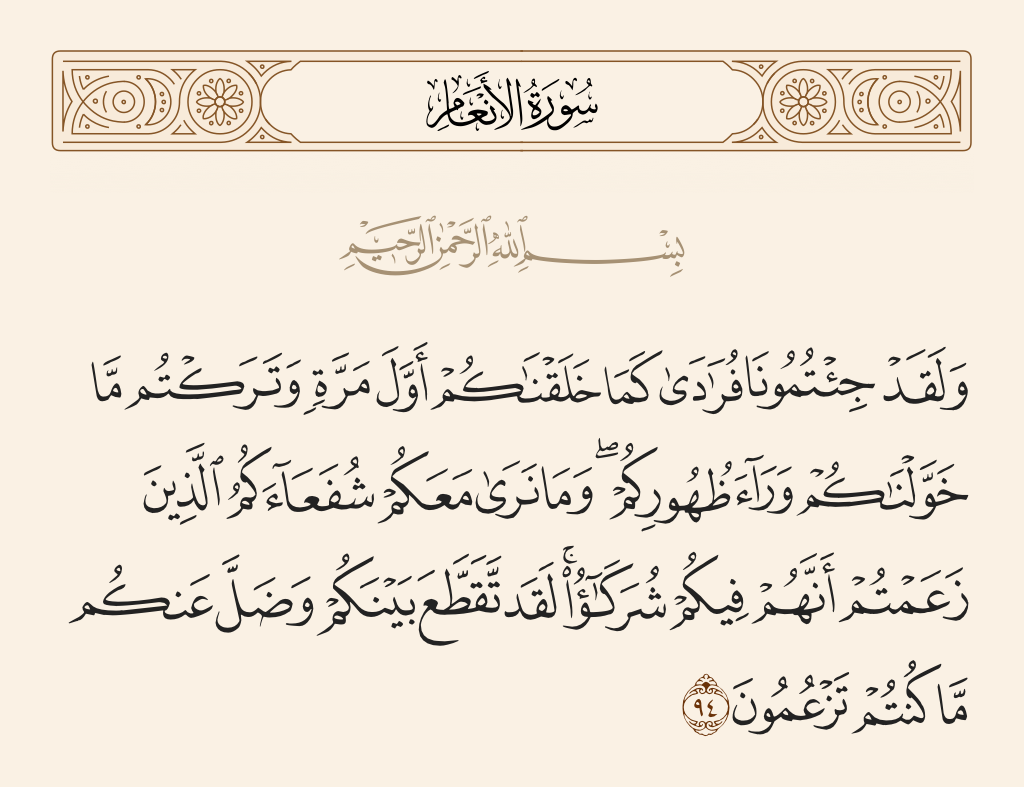 سُورَةُ الأَنْعَامِ
بِسْمِ ٱللَّهِ ٱلرَّحْمَٰنِ ٱلرَّحِيمِ
وَلَقَدْ جِئْتُمُونَا فُرَٰدَىٰ كَمَا خَلَقْنَٰكُمْ أَوَّلَ مَرَّةٍ وَتَرَكْتُم مَّا
خَوَّلْنَٰكُمْ وَرَآءَ ظُهُورِكُمْ ۖ وَمَا نَرَىٰ مَعَكُمْ شُفَعَآءَكُمُ ٱلَّذِينَ
زَعَمْتُمْ أَنَّهُمْ فِيكُمْ شُرَكَٰٓؤُا۟ ۚ لَقَد تَّقَطَّعَ بَيْنَكُمْ وَضَلَّ عَنكُم
مَّا كُنتُمْ تَزْعُمُونَ ٩٤